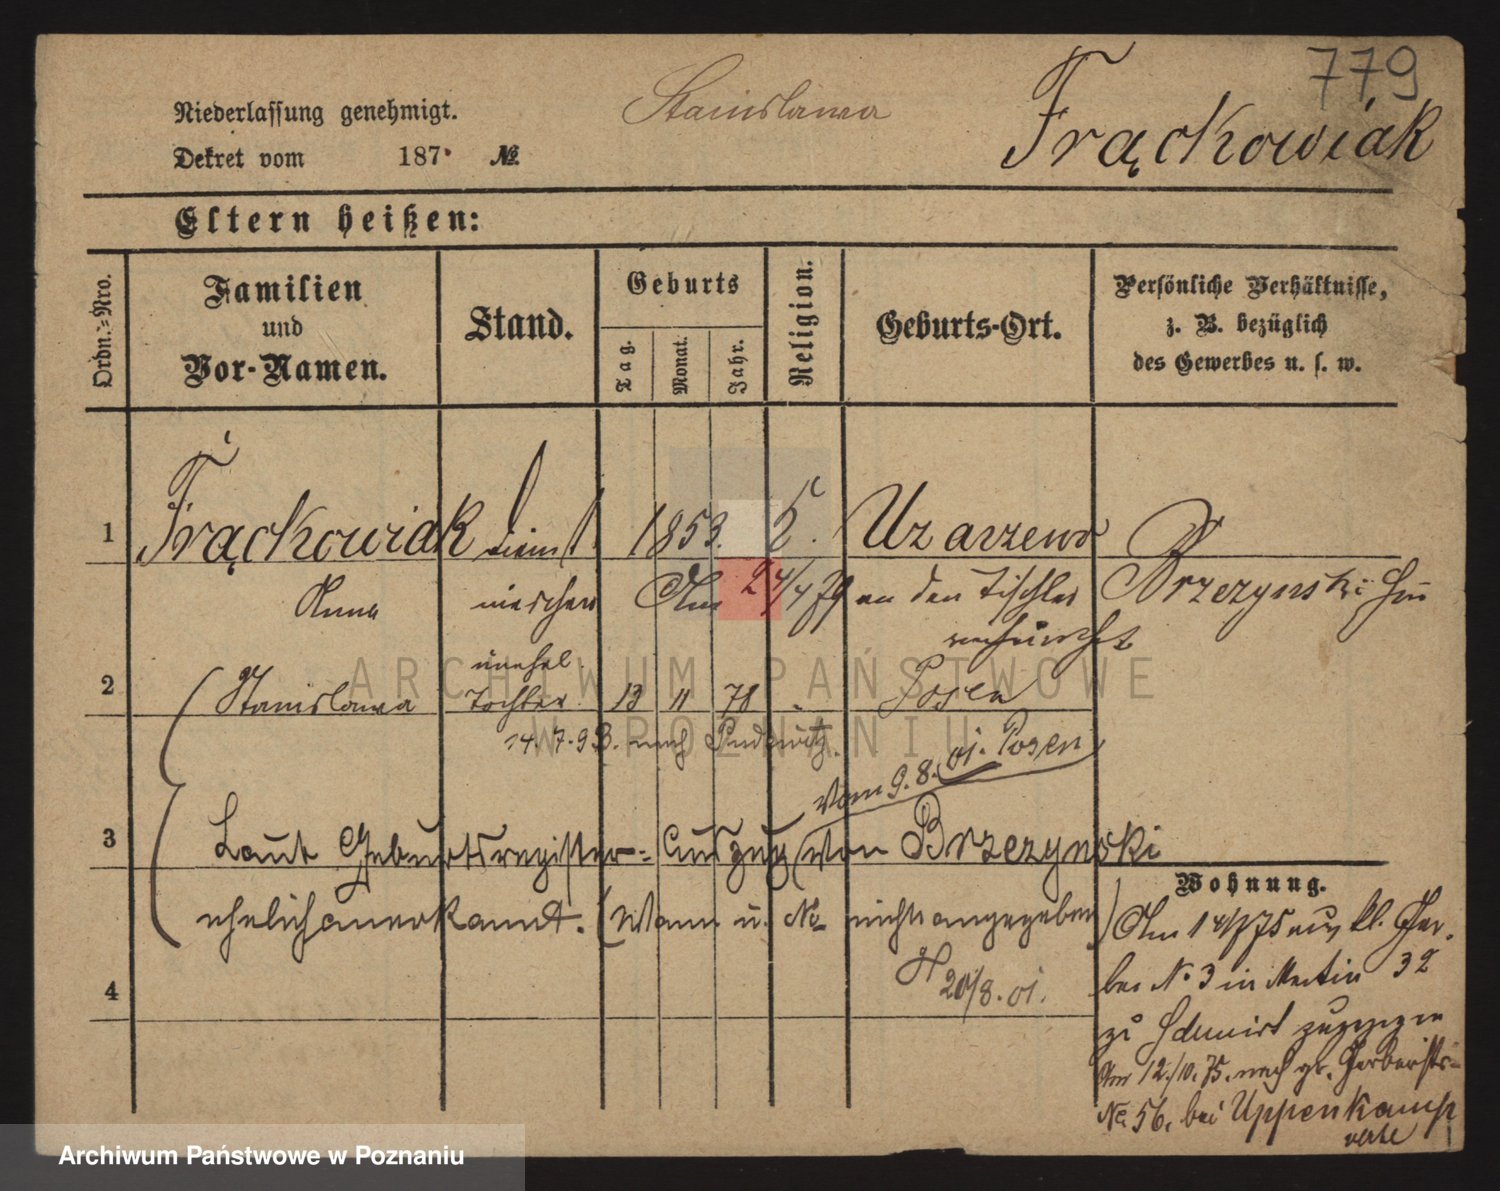 779
Stanisława
Frąckowiak
Niederlassung genehmigt.
Dekret vom 187 №
Eltern heißen:
Ordn.=Nro.
Familien
und
Vor-Namen.
Stand.
Geburts
Tag.
Monat.
Jahr.
Religion.
Geburts-Ort.
Persönliche Verhältnisse,
z. B. bezüglich
des Gewerbes u. s. w.
1 Frąckowiak dienst 1853. Uzarzewo
Anna mädchen Am 24/4 79 an den Tischler Brzezynski
verheirathet
unehel.
2 Stanislawa Tochter 13 11 78 " Posen
14.7.93. nach Pudewitz.
vom 9.8.01. Posen
3 Laut Geburtsregister-Auszug von Brzezynski
ehelich anerkannt. (Wann u. № nicht angegeben)
20/8.01.
4
Wohnung.
Am 14/7 75 aus kl. Ger-
ber № 3 in Martin 32
zu zugezogen
Am 12./10. 75. nach gr. Gerberstr.
№ 56. bei Uppenkamp
verte
ARCHIWUM PAŃSTWOWE
W POZNANIU
Archiwum Państwowe w Poznaniu